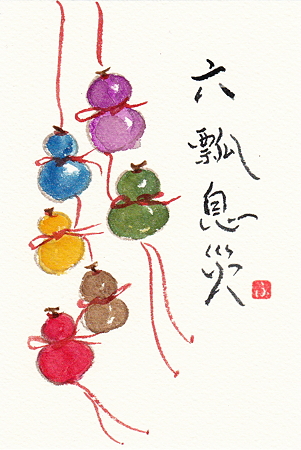 六瓢息災